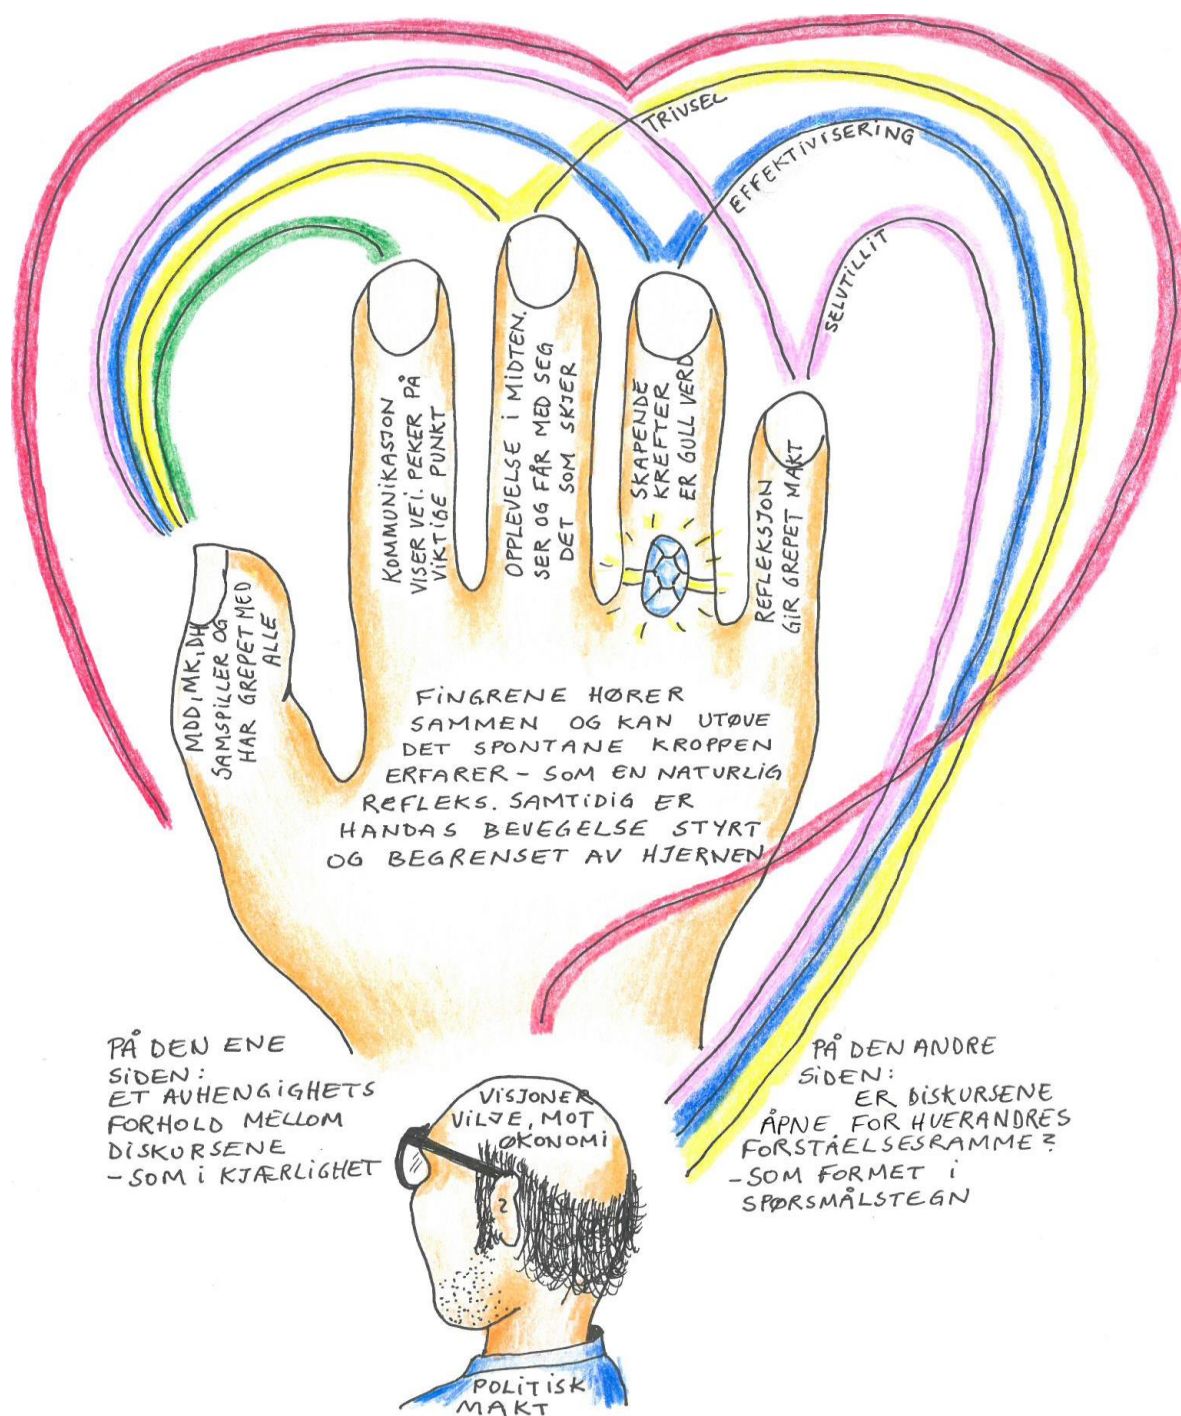 TRIVSEL
EFFEKTIVISERING
SELVTILLIT
MDD, MK, DH
SAMSPILLER OG
HAR GREPET MED
ALLE
KOMMUNIKASJON
VISER VEI. PEKER PÅ
VIKTIGE PUNKT
OPPLEVELSE I MIDTEN.
SER OG FÅR MED SEG
DET SOM SKJER
SKAPENDE
KREFTER
ER GULL VERD
REFLEKSJON
GIR GREPET MAKT
FINGRENE HØRER
SAMMEN OG KAN UTØVE
DET SPONTANE KROPPEN
ERFARER - SOM EN NATURLIG
REFLEKS. SAMTIDIG ER
HANDAS BEVEGELSE STYRT
OG BEGRENSET AV HJERNEN
PÅ DEN ENE
SIDEN:
ET AVHENGIGHETS
FORHOLD MELLOM
DISKURSENE
- SOM I KJÆRLIGHET
VISJONER
VILJE, MOT
ØKONOMI
PÅ DEN ANDRE
SIDEN:
ER DISKURSENE
ÅPNE FOR HVERANDRES
FORSTÅELSESRAMME?
- SOM FORMET I
SPØRSMÅLSTEGN
POLITISK
MAKT